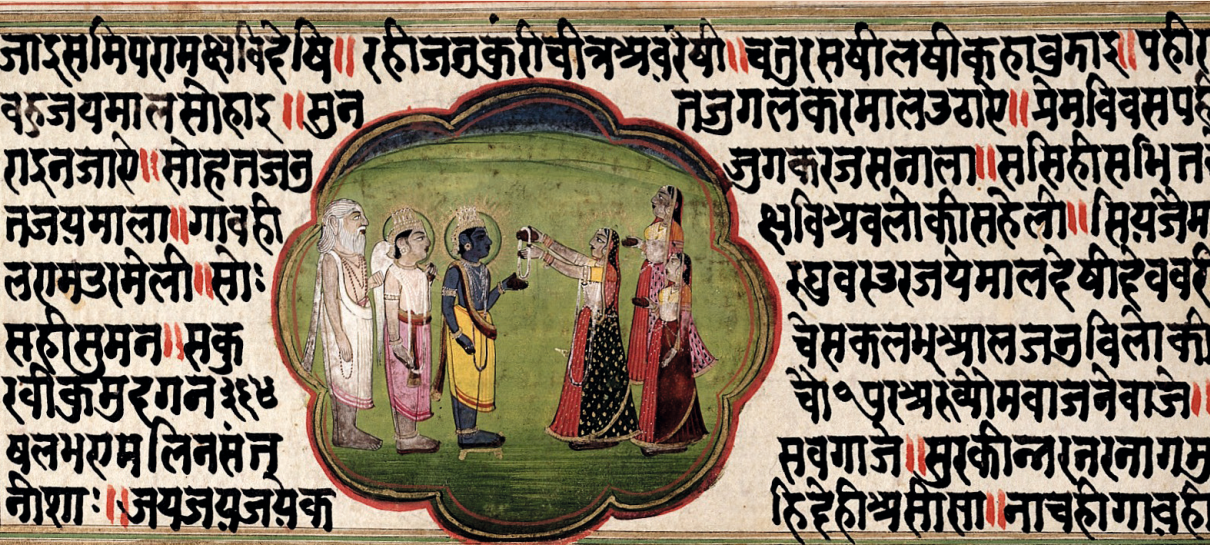 जाइसमिपरामक्षविदेषि॥रहीजनुकुंरीचीत्रश्रवरेषी॥चतुरसषीलषीकहावुझाइ॥पहीर
वहुजयमालसोहाइ॥सुन तजुगलकरमालउठाऐ॥प्रेमविवसपही
राइनजाऐ॥सोहतजनु जुगकरजसनाला॥ससिहीसभित
तजयमाला॥गावही क्षविश्रवलोकीसहेली॥सियजैम
लरामउरमेली॥सोः रघुवरउरजयेमालदेषीदेववरी
सहीसुमन॥सकु चेसकलभुश्रालजनुविलोकी
रवीकुमुदगन३६४ चो॰पुरश्ररुव्योमवाजनेवाजे॥
षलभएमलिनसंत सवगाजे॥सुरकीन्नरनरनागमु
नीशाः॥जयजयजयेक हिदेहीश्रसीसा॥नाचहीगावही